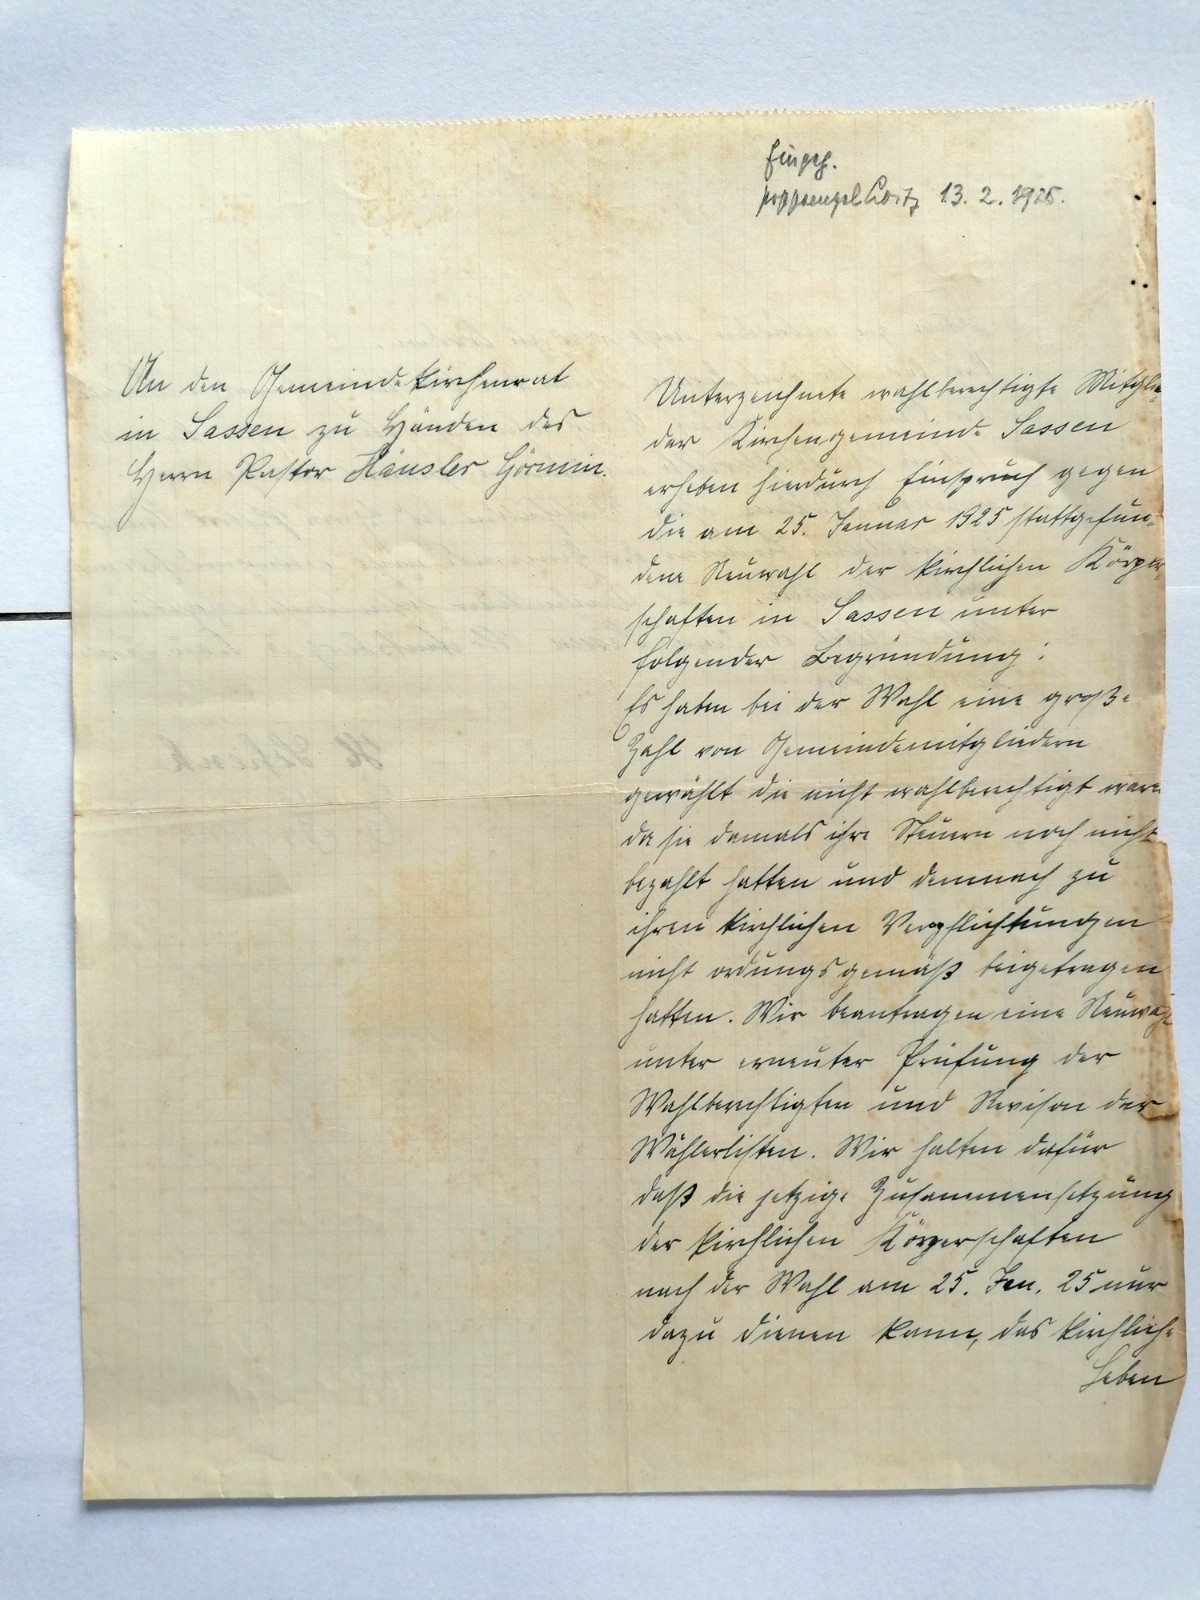 Eingeg.
Loitz 13. 2. 1925.
An den Gemeindekirchenrat
in Sassen zu Händen des
Herrn Pastor Häusler Görmin.
Unterzeichnete wahlberechtigte Mitglie-
der der Kirchengemeinde Sassen
erheben hierdurch Einspruch gegen
die am 25. Januar 1925 stattgefun-
dene Neuwahl der kirchlichen Körper-
schaften in Sassen unter
folgender Begründung:
Es haben bei der Wahl eine große
Zahl von Gemeindemitgliedern
gewählt die nicht wahlberechtigt waren
da sie damals ihre Steuern noch nicht
bezahlt hatten und demnach zu
ihren kirchlichen Verpflichtungen
nicht ordungsgemäß beigetragen
hatten. Wir beantragen eine Neuwahl
unter erneuter Prüfung der
Wahlberechtigten und Revison der
Wählerlisten. Wir halten dafür
daß die jetzige Zusammensetzung
der kirchlichen Körperschaften
nach der Wahl am 25. Jan. 25 nur
dazu dienen kann, das kirchliche
Leben